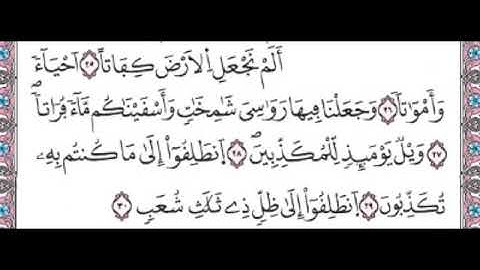 أَلَمْ نَجْعَلِ اِ۬لَارْضَ كِفَاتاً ٢٥ اَحْيَآءٗ
وَأَمْوَٰتاٗ ٢٦ وَجَعَلْنَا فِيهَا رَوَٰسِىَ شَٰمِخَٰتٖ وَأَسْقَيْنَٰكُم مَّآءٗ فُرَاتاٗ
٢٧ وَيْلٞ يَوْمَئِذٖ لِّلْمُكَذِّبِينَ ٢٨ اَ۪نطَلِقُوٓاْ إِلَىٰ مَا كُنتُم بِهِۦ
تُكَذِّبُونَ ٢٩ اَ۪نطَلِقُوٓاْ إِلَىٰ ظِلّٖ ذِے ثَلَٰثِ شُعَبٖ ٣٠